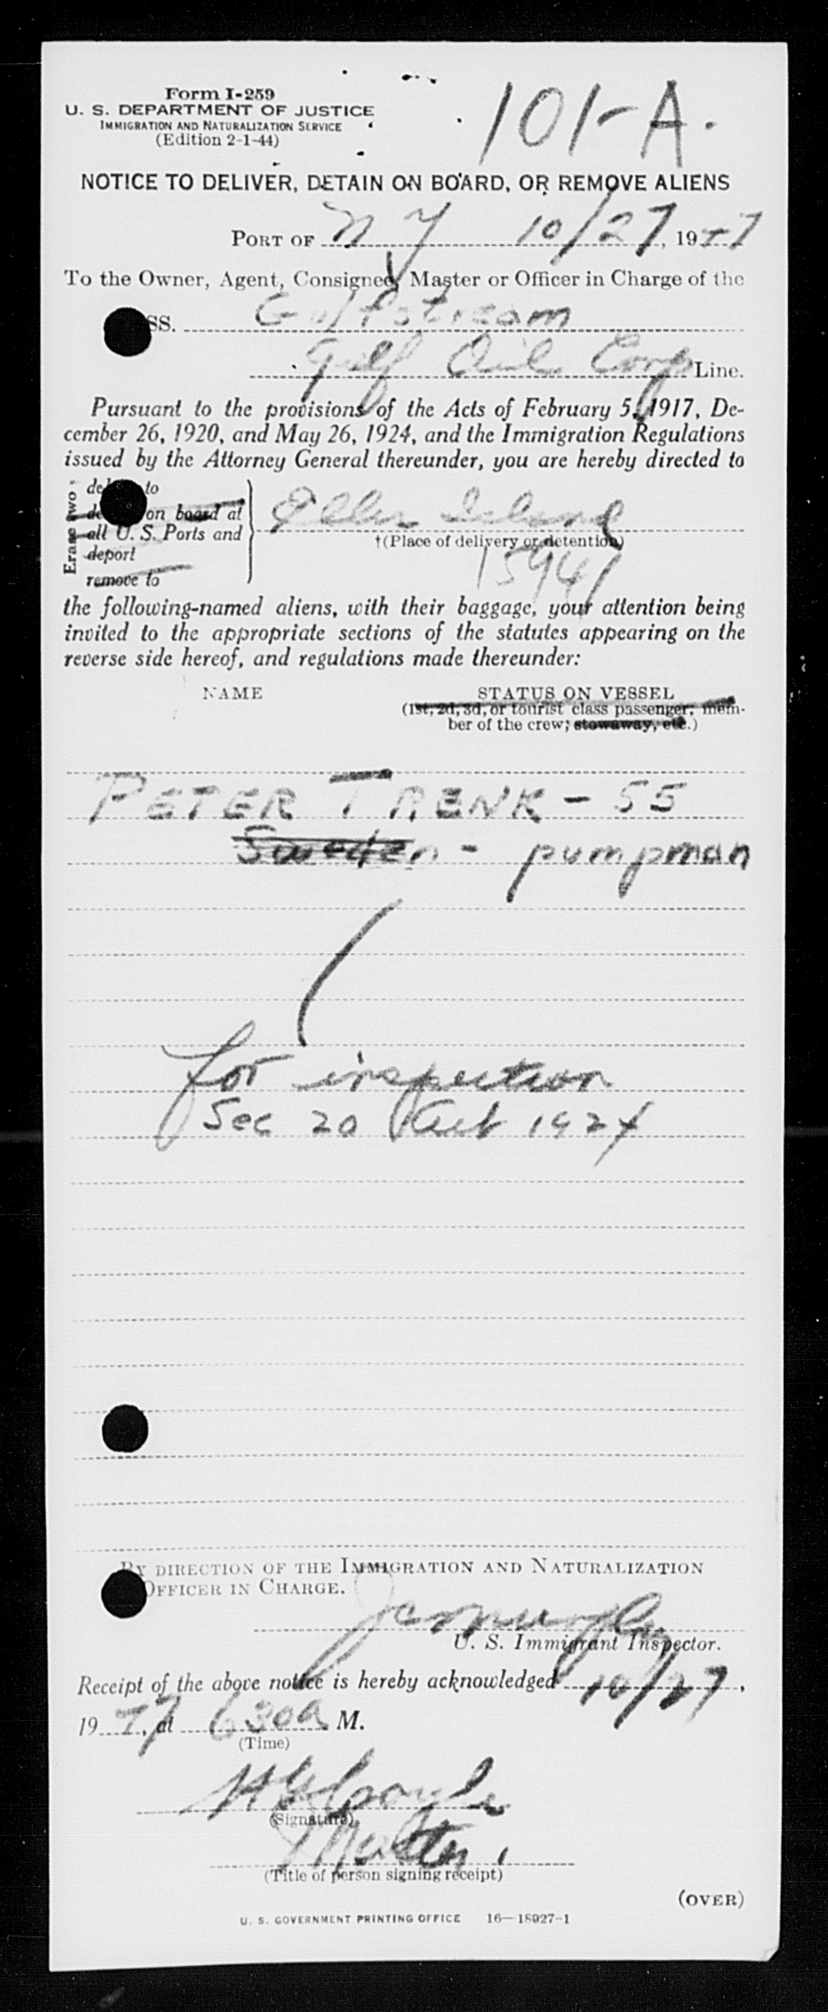 Form I-259
101-A.
U. S. DEPARTMENT OF JUSTICE
IMMIGRATION AND NATURALIZATION SERVICE
(Edition 2-1-44)
NOTICE TO DELIVER, DETAIN ON BOARD, OR REMOVE ALIENS
PORT OF N Y 10/27, 1947
To the Owner, Agent, Consignee, Master or Officer in Charge of the
SS. Gulfstream
Gulf Oil Corp Line.
Pursuant to the provisions of the Acts of February 5, 1917, De-
cember 26, 1920, and May 26, 1924, and the Immigration Regulations
issued by the Attorney General thereunder, you are hereby directed to
Erase two
to
on board at
all U. S. Ports and
deport
remove to
Ellis Island
†(Place of delivery or detention)
15941
the following-named aliens, with their baggage, your attention being
invited to the appropriate sections of the statutes appearing on the
reverse side hereof, and regulations made thereunder:
NAME STATUS ON VESSEL
(1st, 2d, 3d, or tourist class passenger, mem-
ber of the crew; stowaway, etc.)
PETER TRENK - 55
Sweden - pumpman
for inspection
Sec 20 Act 1924
BY DIRECTION OF THE IMMIGRATION AND NATURALIZATION
OFFICER IN CHARGE.
U. S. Immigrant Inspector.
Receipt of the above notice is hereby acknowledged 10/27,
1947, at 630a M.
(Time)
(Signature)
Master
(Title of person signing receipt)
(OVER)
U. S. GOVERNMENT PRINTING OFFICE 16—18927-1